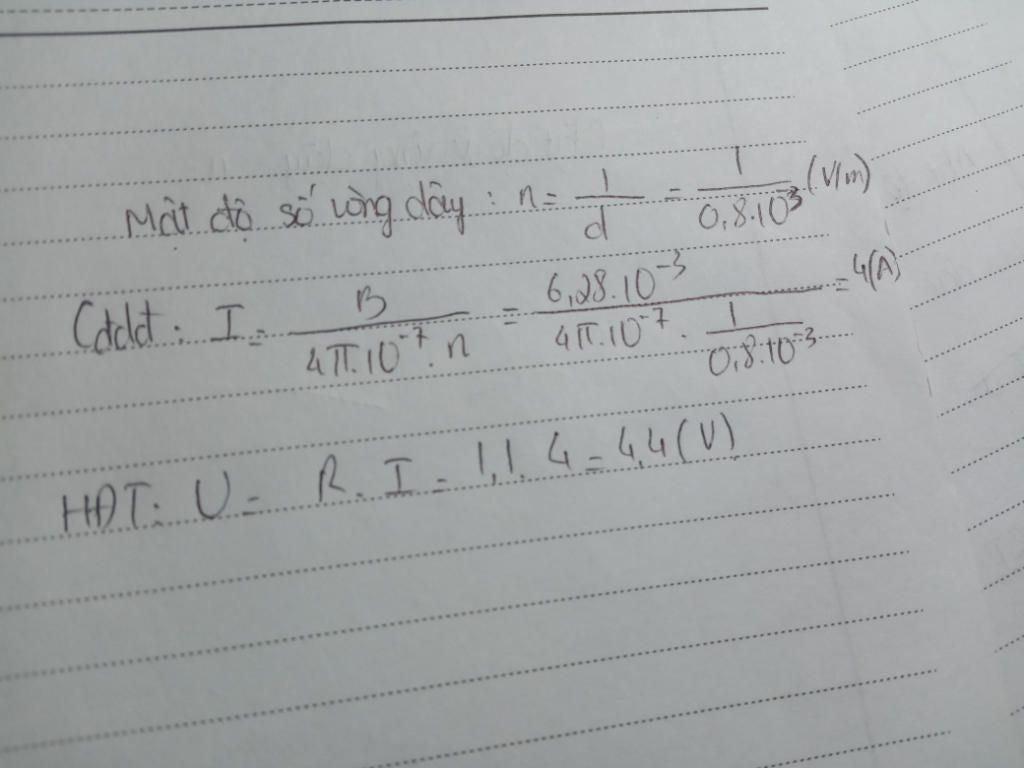 Mật độ số vòng dây : n = 1/d = 1/0,8.10^-3 (V/m)
Cđdđ : I = B/4π.10^-7.n = 6,28.10^-3/4π.10^-7 . 1/0,8.10^-3 = 4(A)
HĐT: U = R.I = 1,1.4 = 4,4(V)